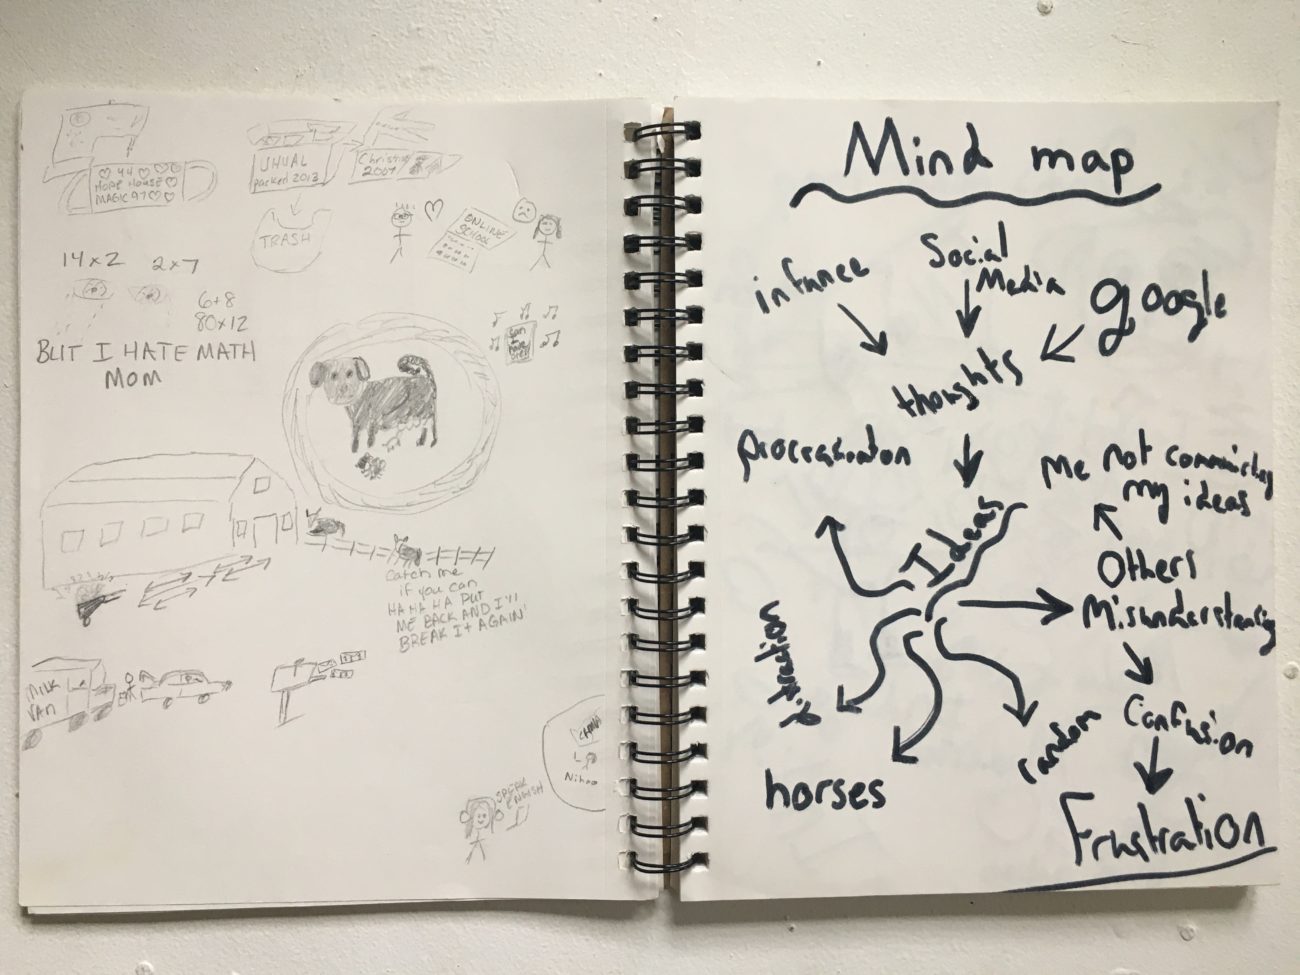 44
HOPE HOUSE
MAGIC 97
UNUAL
packed 2013
Christmas
2007
TRASH
ONLINE
SCHOOL
14x2
2x7
6+8
80x12
BUT I HATE MATH
MOM
catch me
if you can
HA HA HA PUT
ME BACK AND I'll
BREAK It AGAIN'
MILK
VAN
SPEAK
ENGLISH
Mind map
infunce
Social
Media
google
thoughts
procrasinaton
Ideas
me not comminicting
my ideas
Others
Misunderstanding
Confusion
Frustration
random
horses